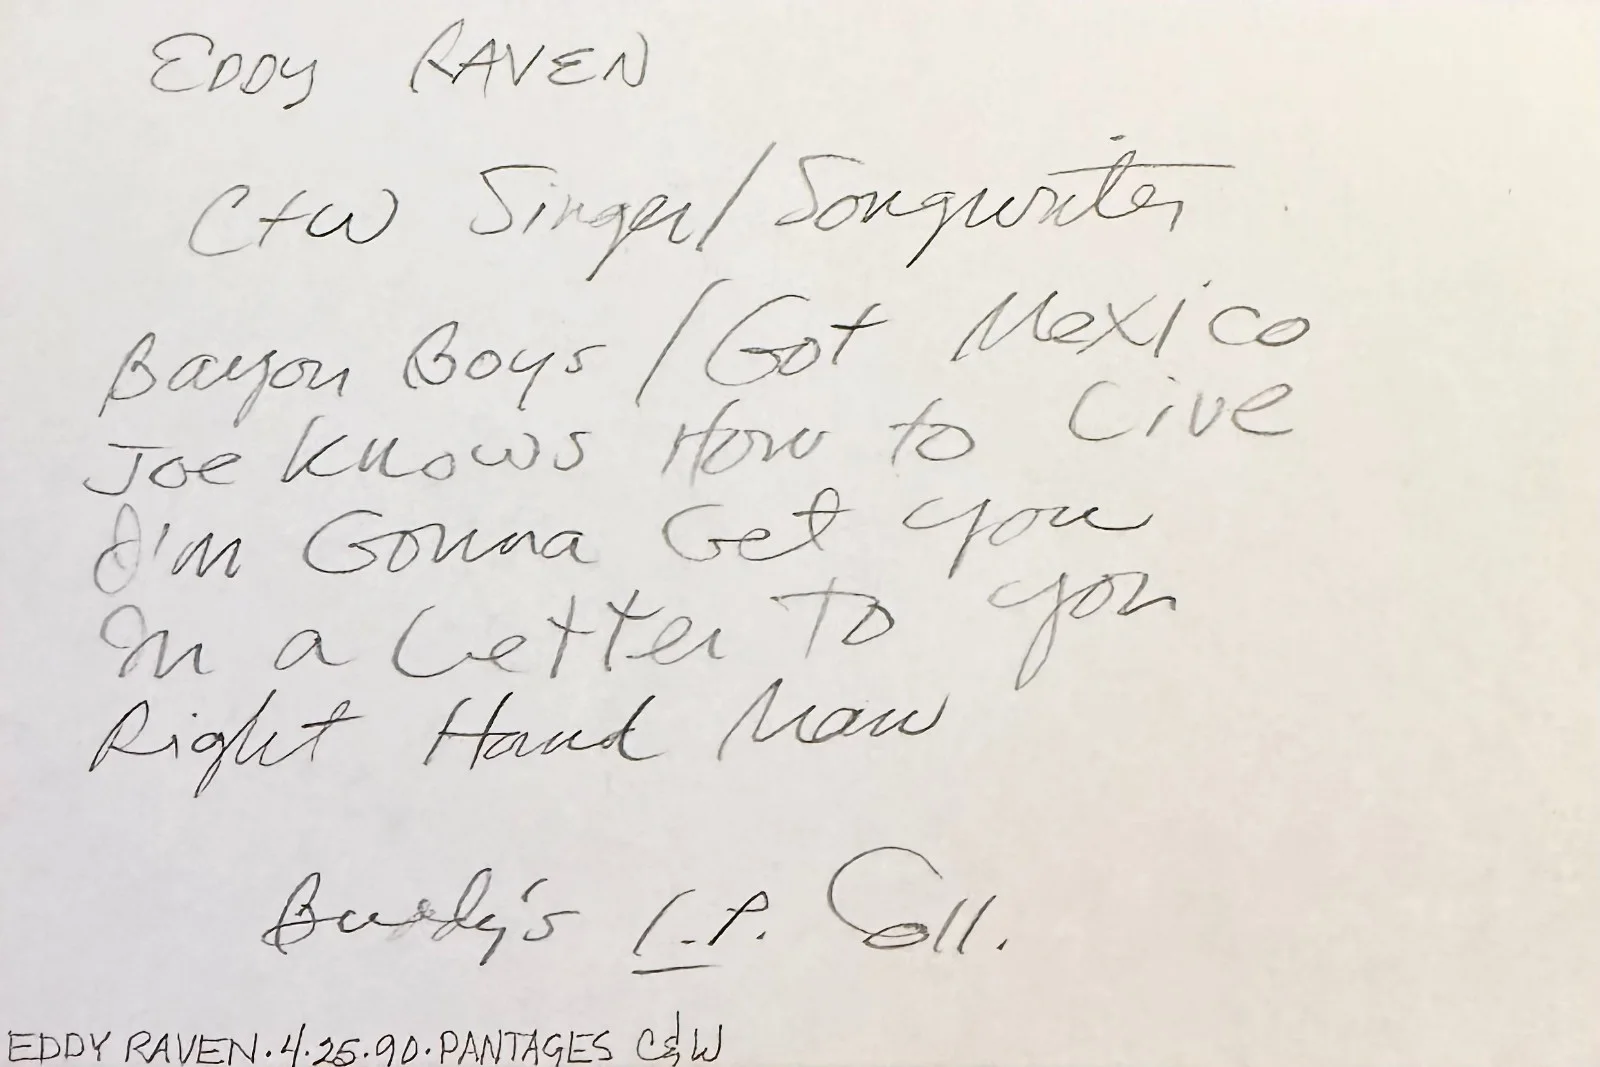 EDDY RAVEN
C+W Singer/Songwriter
Bayou Boys / Got Mexico
Joe Knows How to Live
I'm Gonna Get you
In a Letter To you
Right Hand Man
Buddy's L.P. Coll.
EDDY RAVEN · 4·25·90 · PANTAGES C&W